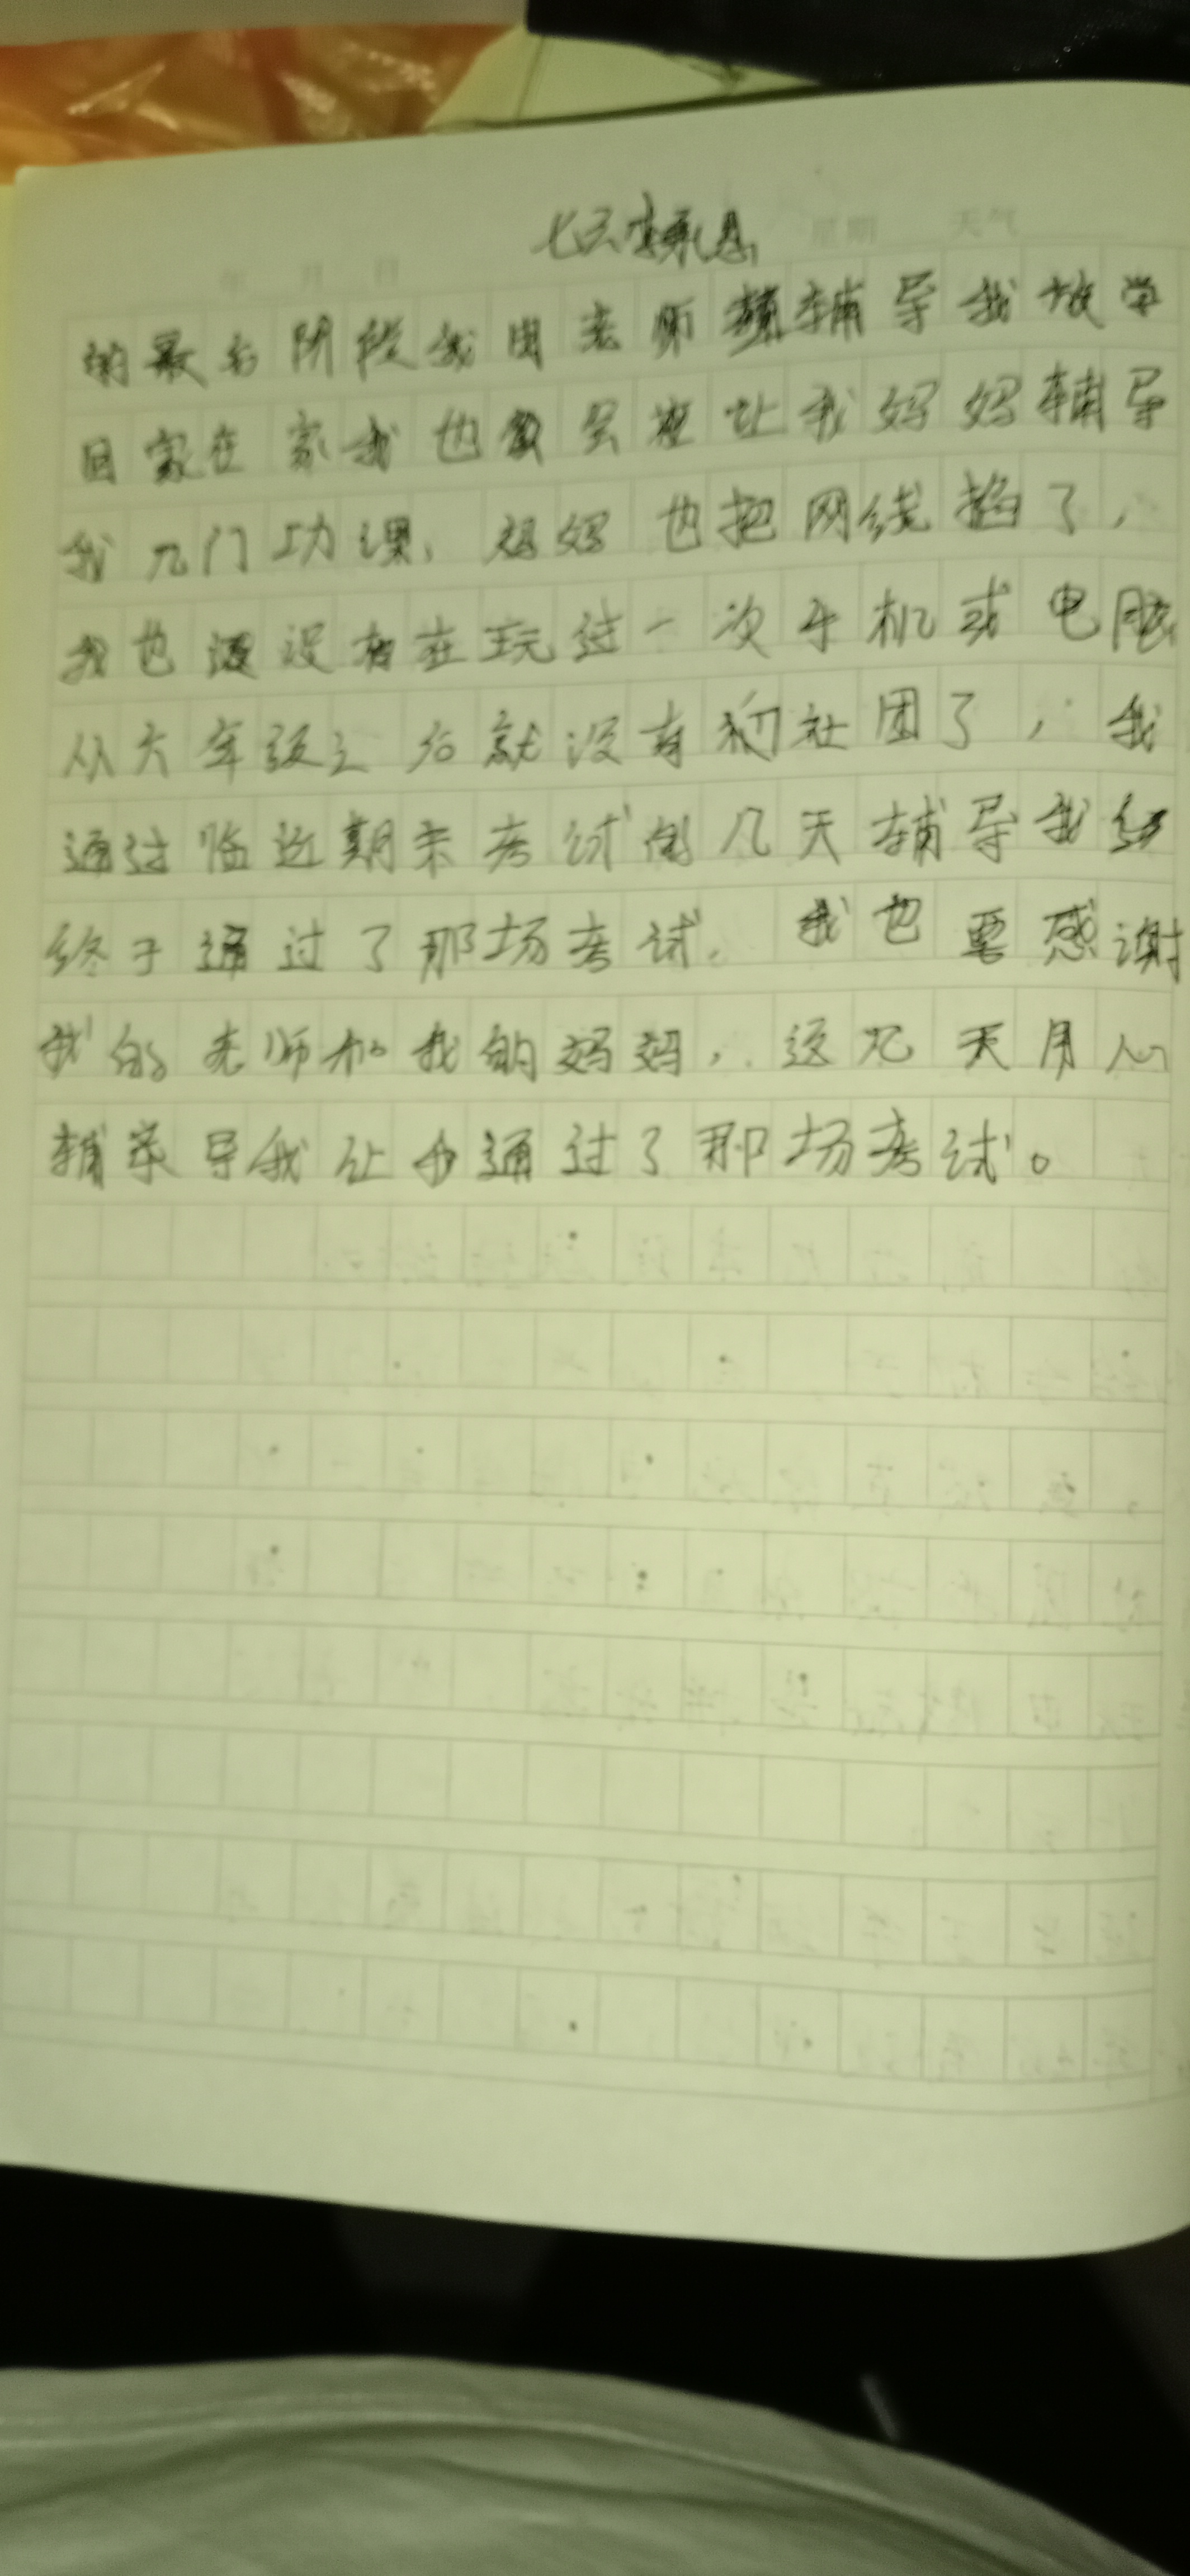 星期 天气
年 月 日
的最后阶段我由老师辅导我放学
回家在家我也会让我妈妈辅导
我几门功课，妈妈也把网线掐了，
我也没没有在玩过一次手机或电脑
从六年级之后就没有社团了，我
通过临近期末考试的几天辅导我终
终于通过了那场考试。我也要感谢
我的老师和我的妈妈，这几天用心
辅导我让我通过了那场考试。